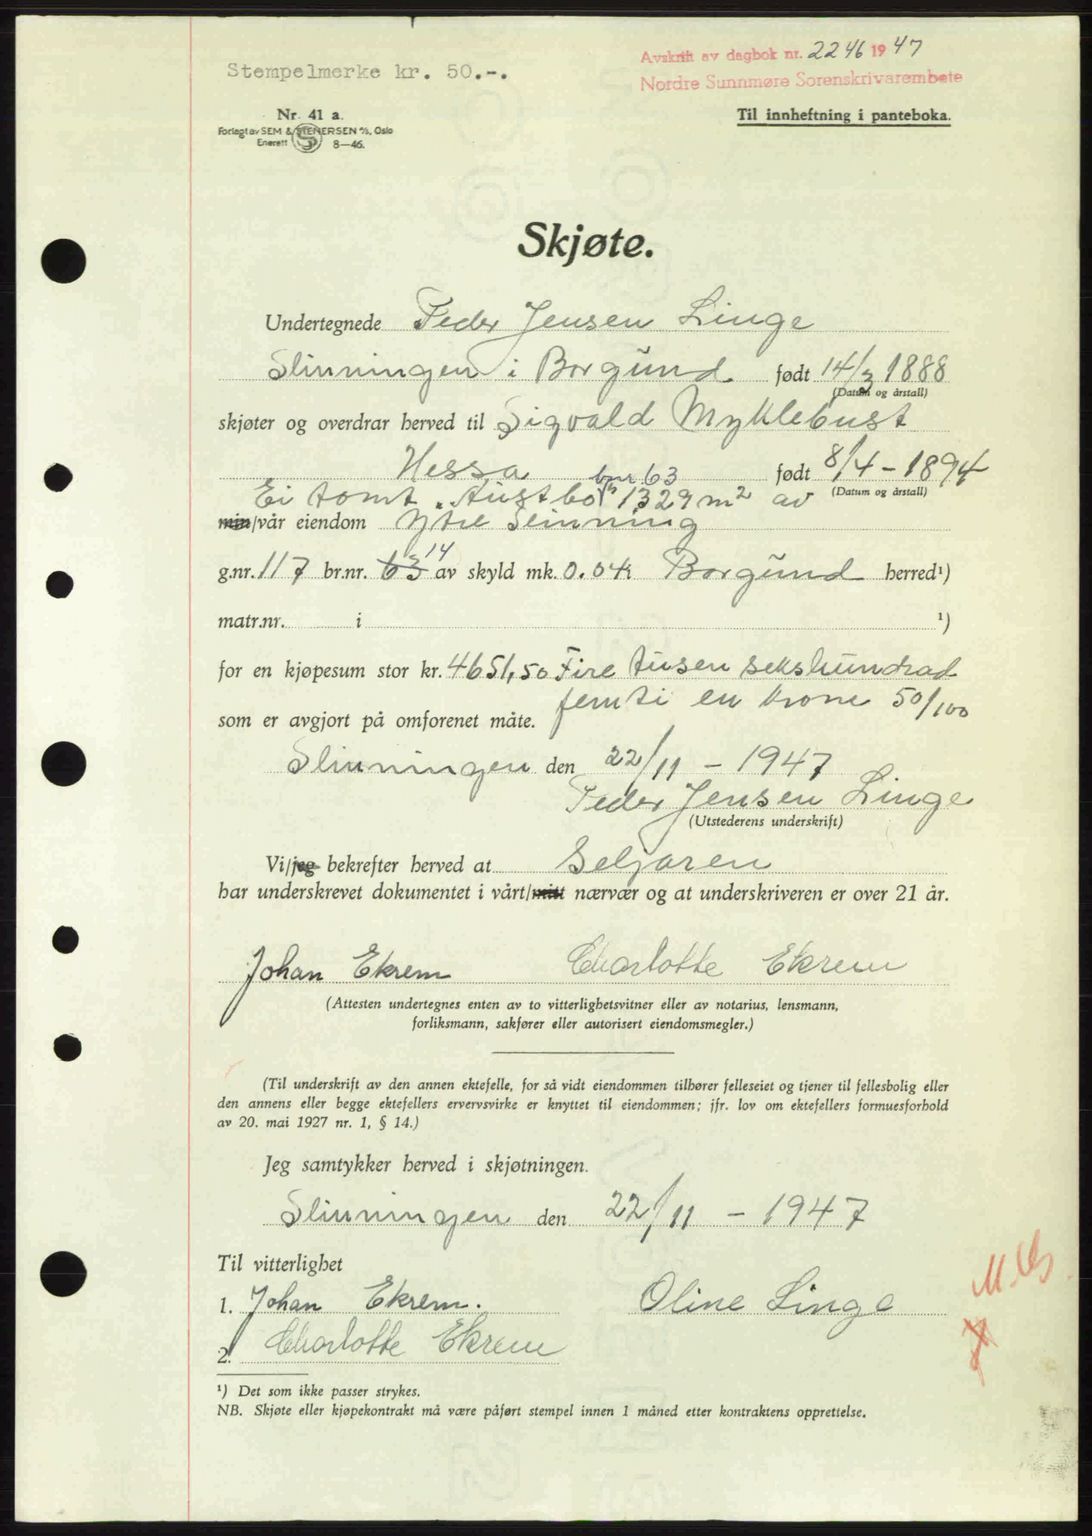 Stempelmerke kr. 50.-.
Avskrift av dagbok nr. 2246 1947
Nordre Sunnmøre Sorenskrivarembete
Nr. 41 a.
Forlagt av SEM & STENERSEN A/S, Oslo
Enerett 8—46.
Til innheftning i panteboka.
Skjøte.
Undertegnede Peder Jensen Linge
Slinningen i Borgund født 14/3 1888
(Datum og årstall)
skjøter og overdrar herved til Sigvald Myklebust
Hessa født 8/4 - 1894
(Datum og årstall)
bnr 63
Ei tomt "Austbo" 1329 m² av
min/vår eiendom Ytre Slinning
g.nr. 117 br.nr. 63 14 av skyld mk. 0.04 Borgund herred¹)
matr.nr. i ¹)
for en kjøpesum stor kr. 4651,50 Fire tusen sekshundrad
femti en krone 50/100
som er avgjort på omforenet måte.
Slinningen den 22/11 - 1947
Peder Jensen Linge
(Utstederens underskrift)
Vi/jeg bekrefter herved at Seljaren
har underskrevet dokumentet i vårt/mitt nærvær og at underskriveren er over 21 år.
Johan Ekrem Charlotte Ekrem
(Attesten undertegnes enten av to vitterlighetsvitner eller av notarius, lensmann,
forliksmann, sakfører eller autorisert eiendomsmegler.)
(Til underskrift av den annen ektefelle, for så vidt eiendommen tilhører felleseiet og tjener til fellesbolig eller
den annens eller begge ektefellers ervervsvirke er knyttet til eiendommen; jfr. lov om ektefellers formuesforhold
av 20. mai 1927 nr. 1, § 14.)
Jeg samtykker herved i skjøtningen.
Slinningen den 22/11 - 1947
Til vitterlighet
1. Johan Ekrem. Oline Linge
2. Charlotte Ekrem
¹) Det som ikke passer strykes.
NB. Skjøte eller kjøpekontrakt må være påført stempel innen 1 måned etter kontraktens opprettelse.